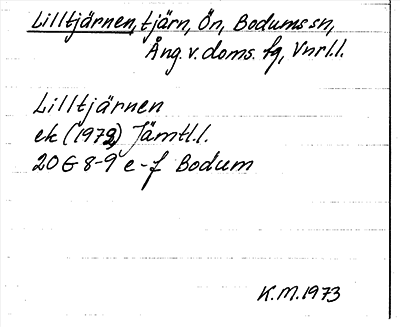 Lilltjärnen, tjärn, Ön, Bodums sn,
Ång. v. doms. fg, Vnrl. l.
Lilltjärnen
ek (1972) Jämtl. l.
20 G 8-9 e-f Bodum
K.M. 1973